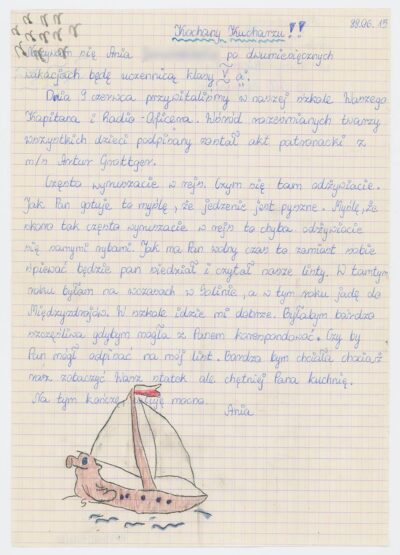 88.06.15
Kochany Kucharzu!!
Nazywam się Ania po dwumiesięcznych
wakacjach będę uczennicą klasy V a.
Dnia 9 czerwca przywitaliśmy w naszej szkole Waszego
Kapitana i Radio-Oficera. Wśród roześmianych twarzy
wszystkich dzieci podpisany został akt patronacki z
m/s Artur Grottger.
Często wyruszacie w rejs. Czym się tam odżywiacie.
Jak Pan gotuje to myślę, że jedzenie jest pyszne. Myślę, że
skoro tak często wyruszacie w rejs to chyba odżywiacie
się samymi rybami. Jak ma Pan wolny czas to zamiast sobie
śpiewać będzie pan siedział i czytał nasze listy. W tamtym
roku byłam na wczasach w Solinie, a w tym roku jadę do
Międzyzdrojów. W szkole idzie mi dobrze. Byłabym bardzo
szczęśliwa gdybym mogła z Panem korespondować. Czy by
Pan mógł odpisać na mój list. Bardzo bym chciała chociaż
raz zobaczyć Wasz statek ale chętniej Pana kuchnię.
Na tym kończę, całuję mocno.
Ania